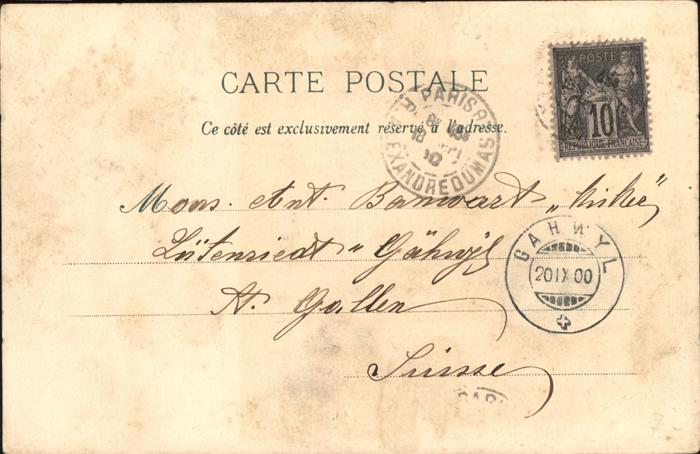 CARTE POSTALE
Ce côté est exclusivement réservé à l'adresse.
POSTE
10
REPUBLIQUE FRANÇAISE
PARIS R.
ALEXANDRE DUMAS
Mons. Ant. Banwart
Lütenriedt Gähwyl
St. Gallen
Suisse
GÄHWYL
20 IX 00
PARI